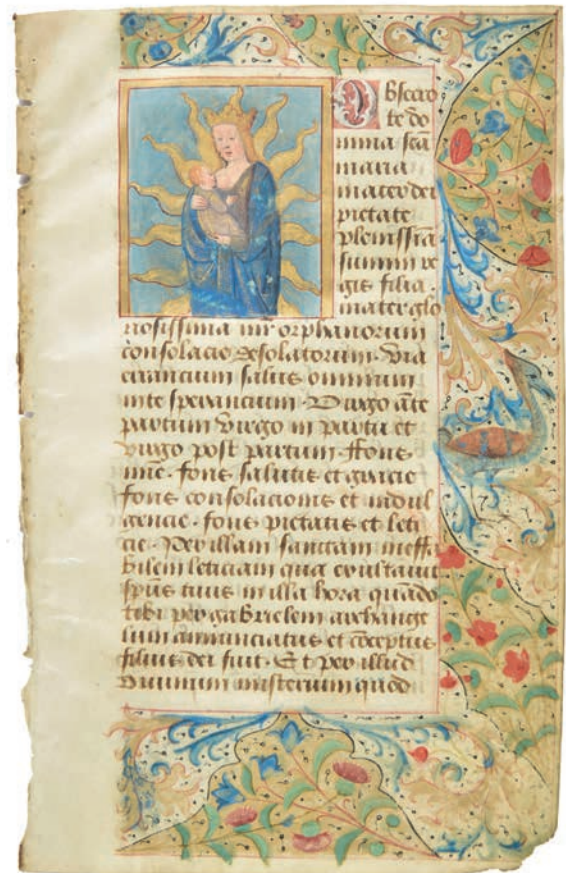 Obsecro
te do
mina scā
maria
mater dei
pietate
plenissīa
summi re
gis filia.
mater glo
riosissima mr̄ orphanorum
consolacio desolatorum. Via
errancium salus omnium
inte sperancium. Virgo āte
partum virgo in partu et
virgo post partum. ffons
mie. fons salutis et gracie
fons consolacionis et indul
gencie. fons pietatis et leti
cie. Per illam sanctam ineffa
bilem leticiam qua exultauit
spūs tuus in illa hora quādo
tibi per gabrielem archange
lum annunciatus et cōceptus
filius dei fuit. Et per illud
diuinum misterium quod